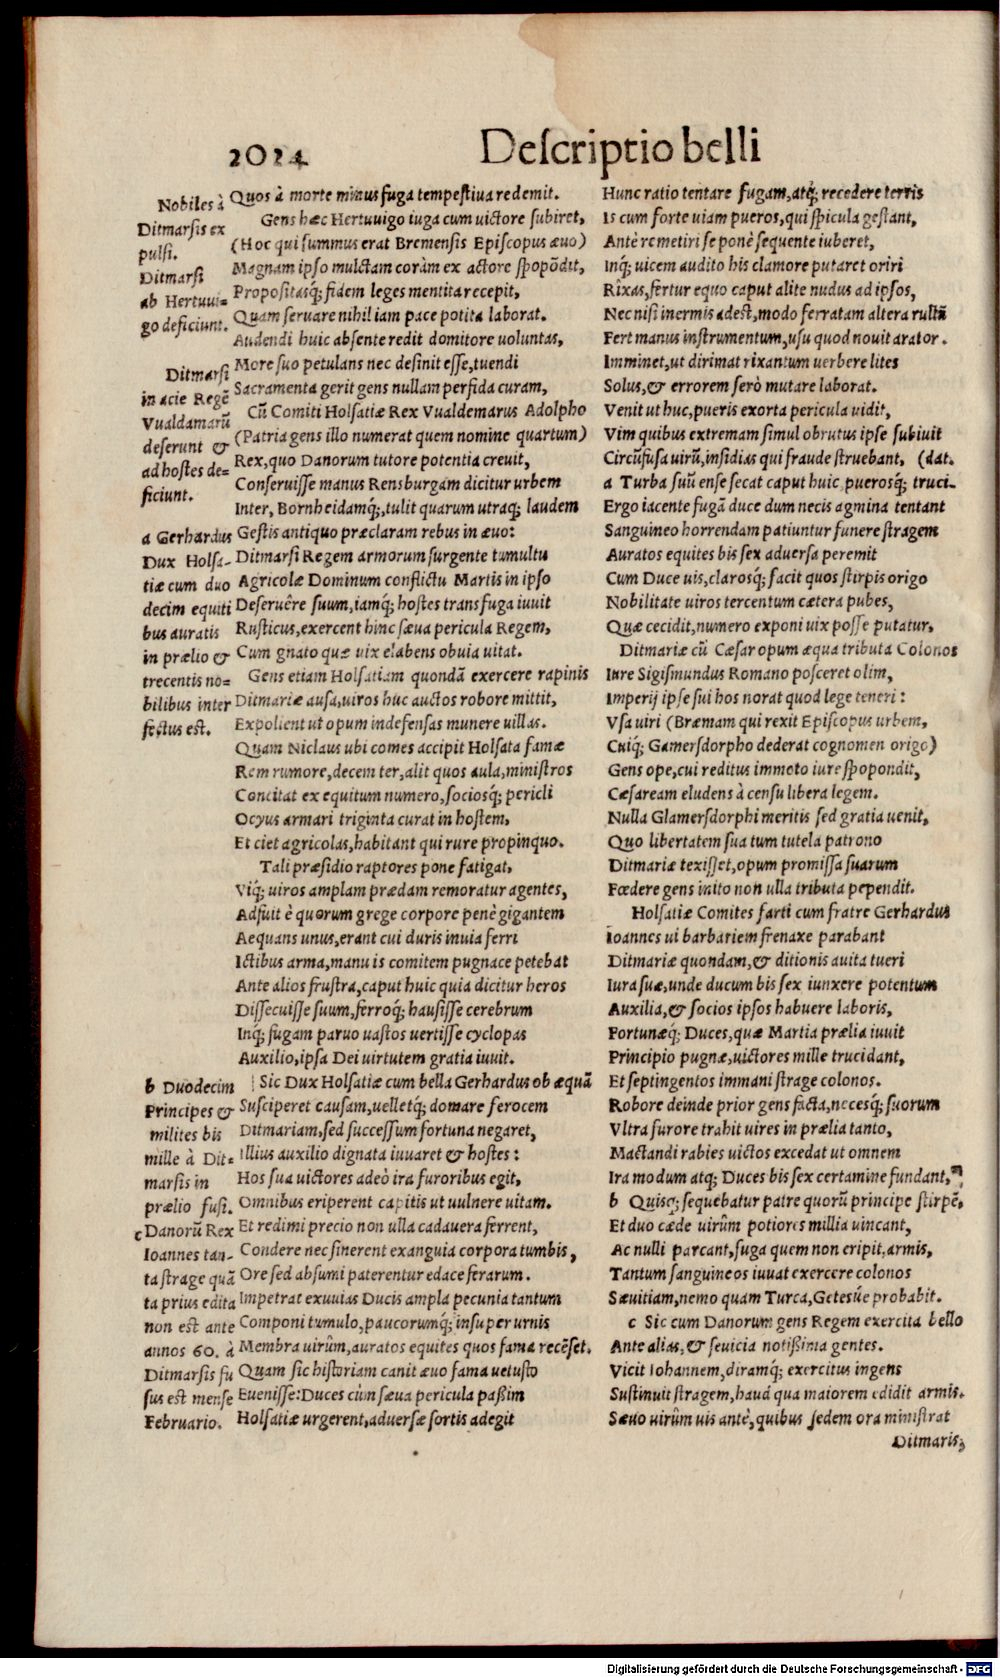 2024
Descriptio belli
Nobiles à
Ditmarsis ex
pulsi.
Ditmarsi
ab Hertuui=
go deficiunt.
Ditmarsi
in acie Regẽ
Vualdamarũ
deserunt &
ad hostes de=
ficiunt.
a Gerhardus
Dux Holsa-
tiæ cum duo
decim equiti
bus auratis
in prælio &
trecentis no=
bilibus inter
fectus est.
b Duodecim
Principes &
milites bis
mille à Dit=
marsis in
prælio fusi.
c Danorũ Rex
Ioannes tan-
ta strage quã
ta prius edita
non est ante
annos 60. à
Ditmarsis fu
sus est mense
Februario.
Quos à morte minus fuga tempestiua redemit.
Gens hæc Hertuuigo iuga cum uictore subiret,
(Hoc qui summus erat Bremensis Episcopus æuo)
Magnam ipso mulctam coràm ex actore spopõdit,
Propositasq́; fidem leges mentita recepit,
Quam seruare nihil iam pace potita laborat.
Audendi huic absente redit domitore uoluntas,
More suo petulans nec desinit esse, tuendi
Sacramenta gerit gens nullam perfida curam,
Cũ Comiti Holsatiæ Rex Vualdemarus Adolpho
(Patria gens illo numerat quem nomine quartum)
Rex, quo Danorum tutore potentia creuit,
Conseruisse manus Rensburgam dicitur urbem
Inter, Bornheidamq́;, tulit quarum utraq; laudem
Gestis antiquo præclaram rebus in æuo:
Ditmarsi Regem armorum surgente tumultu
Agricolæ Dominum conflictu Martis in ipso
Deseruêre suum, iamq́; hostes transfuga iuuit
Rusticus, exercent hinc sæua pericula Regem,
Cum gnato quæ uix elabens obuia uitat.
Gens etiam Holsatiam quondã exercere rapinis
Ditmariæ ausa, uiros huc auctos robore mittit,
Expolient ut opum indefensas munere uillas.
Quam Niclaus ubi comes accipit Holsata famæ
Rem rumore, decem ter, alit quos aula, ministros
Concitat ex equitum numero, sociosq́; pericli
Ocyus armari triginta curat in hostem,
Et ciet agricolas, habitant qui rure propinquo.
Tali præsidio raptores pone fatigat,
Viq́; uiros amplam prædam remoratur agentes,
Adfuit è quorum grege corpore penè gigantem
Aequans unus, erant cui duris inuia ferri
Ictibus arma, manu is comitem pugnace petebat
Ante alios frustra, caput huic quia dicitur heros
Dissecuisse suum, ferroq́; hausisse cerebrum
Inq́; fugam paruo uastos uertisse cyclopas
Auxilio, ipsa Dei uirtutem gratia iuuit.
Sic Dux Holsatiæ cum bella Gerhardus ob æquã
Susciperet causam, uelletq́; domare ferocem
Ditmariam, sed successum fortuna negaret,
Illius auxilio dignata iuuaret & hostes:
Hos sua uictores adeò ira furoribus egit,
Omnibus eriperent capitis ut uulnere uitam.
Et redimi precio non ulla cadauera ferrent,
Condere nec sinerent exanguia corpora tumbis,
Ore sed absumi paterentur edace ferarum.
Impetrat exuuias Ducis ampla pecunia tantum
Componi tumulo, paucorumq́; insuper urnis
Membra uirûm, auratos equites quos fama recẽset.
Quam sic historiam canit æuo fama uetusto
Euenisse: Duces cùm sæua pericula paßim
Holsatiæ urgerent, aduersæ sortis adegit
Hunc ratio tentare fugam, atq́; recedere terris
Is cum forte uiam pueros, qui spicula gestant,
Antè remetiri se ponè sequente iuberet,
Inq́; uicem audito his clamore putaret oriri
Rixas, fertur equo caput alite nudus ad ipsos,
Nec nisi inermis adest, modo ferratam altera rullũ
Fert manus instrumentum, usu quod nouit arator.
Imminet, ut dirimat rixantum uerbere lites
Solus, & errorem serò mutare laborat.
Venit ut huc, pueris exorta pericula uidit,
Vim quibus extremam simul obrutus ipse subiuit
Circũfusa uirũ, insidias qui fraude struebant, (dat.
a Turba suũ ense secat caput huic, puerosq́; truci-
Ergo iacente fugã duce dum necis agmina tentant
Sanguineo horrendam patiuntur funere stragem
Auratos equites bis sex aduersa peremit
Cum Duce uis, clarosq́; facit quos stirpis origo
Nobilitate uiros tercentum cætera pubes,
Quæ cecidit, numero exponi uix posse putatur,
Ditmariæ cũ Cæsar opum æqua tributa Colonos
Iure Sigismundus Romano posceret olim,
Imperij ipse sui hos norat quod lege teneri:
Vsa uiri (Bræmam qui rexit Episcopus urbem,
Cuiq́; Gamersdorpho dederat cognomen origo)
Gens ope, cui reditus immoto iure spopondit,
Cæsaream eludens à censu libera legem.
Nulla Glamersdorphi meritis sed gratia uenit,
Quo libertatem sua tum tutela patrono
Ditmariæ texisset, opum promissa suarum
Fœdere gens inito non ulla tributa pependit.
Holsatiæ Comites farti cum fratre Gerhardus
Ioannes ui barbariem frenaxe parabant
Ditmariæ quondam, & ditionis auita tueri
Iura suæ, unde ducum bis sex iunxere potentum
Auxilia, & socios ipsos habuere laboris,
Fortunæq́; Duces, quæ Martia prælia iuuit
Principio pugnæ, uictores mille trucidant,
Et septingentos immani strage colonos.
Robore deinde prior gens facta, necesq́; suorum
Vltra furore trahit uires in prælia tanto,
Mactandi rabies uictos excedat ut omnem
Ira modum atq; Duces bis sex certamine fundant,
b Quisq; sequebatur patre quorũ principe stirpẽ,
Et duo cæde uirûm potiores millia uincant,
Ac nulli parcant, fuga quem non eripit, armis,
Tantum sanguineos iuuat exercere colonos
Sæuitiam, nemo quam Turca, Getesûe probabit.
c Sic cum Danorum gens Regem exercita bello
Ante alias, & seuicia notißima gentes.
Vicit Iohannem, diramq́; exercitus ingens
Sustinuit stragem, haud qua maiorem edidit armis.
Sæuo uirûm uis antè, quibus fedem ora ministrat
Ditmaris,
Digitalisierung gefördert durch die Deutsche Forschungsgemeinschaft - DFG